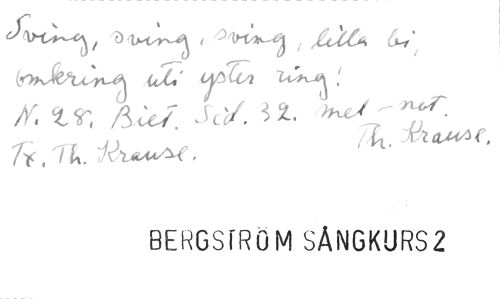 Sving, sving, sving, lilla bi,
omkring uti yster ring!
N. 28. Biet. Sid. 32. mel-not.
Th. Krause.
Tx. Th. Krause.
BERGSTRÖM SÅNGKURS 2